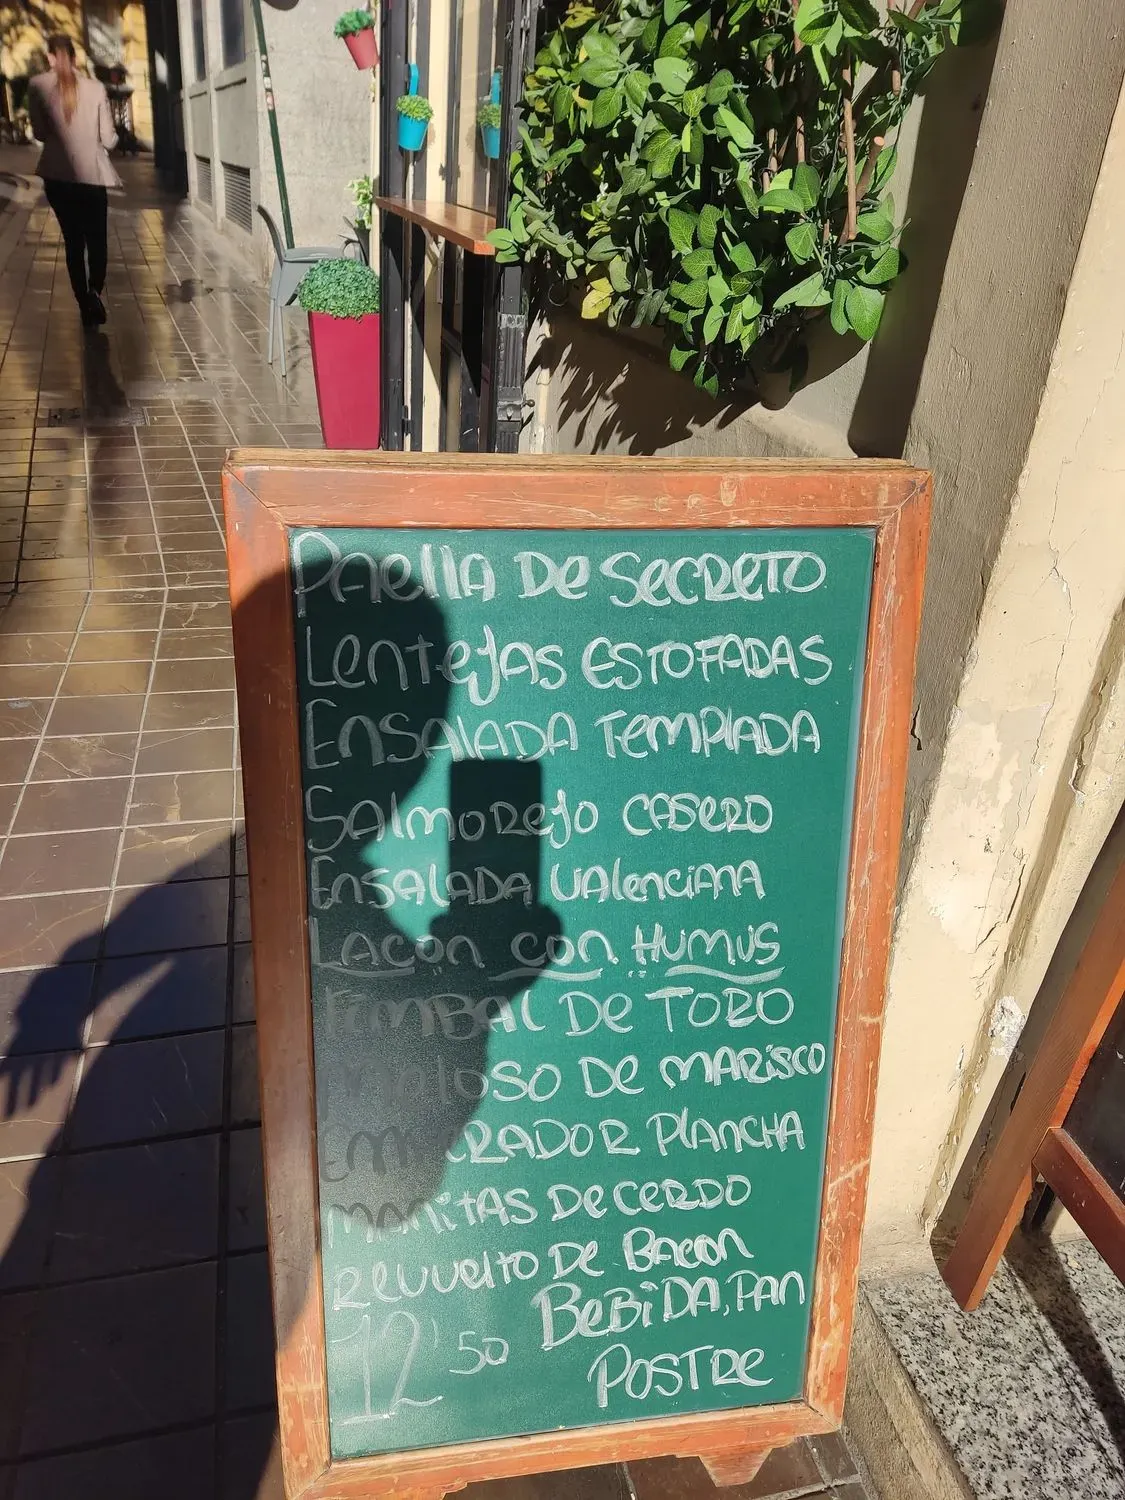 Paella de Secreto
Lentejas Estofadas
Ensalada Templada
Salmorejo Casero
Ensalada Valenciana
Lacon con Humus
Timbal de Toro
Meloso de Marisco
Emperador Plancha
Manitas de Cerdo
Revuelto de Bacon
12'50 Bebida, Pan
Postre